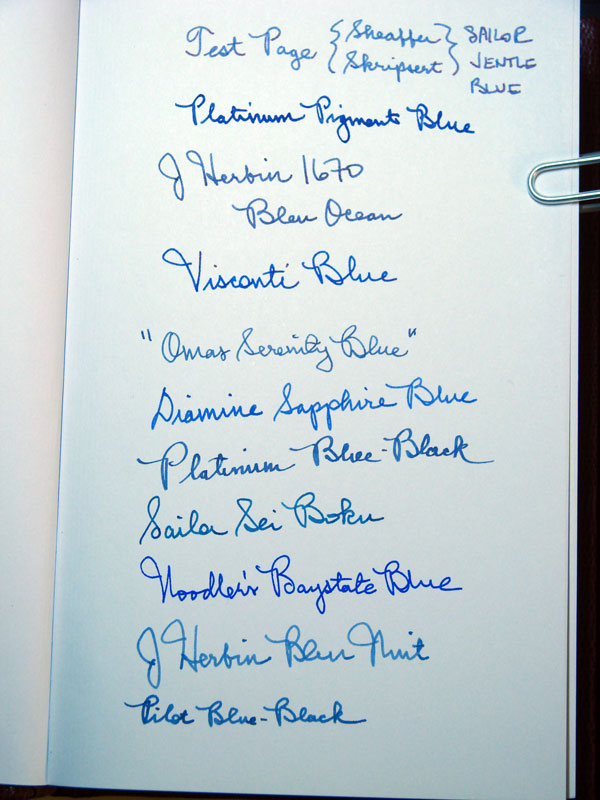 Test Page { Sheaffer Skripsert } SAILOR JENTLE BLUE
Platinum Pigment Blue
J Herbin 1670
Bleu Ocean
Visconti Blue
"Omas Serenity Blue"
Diamine Sapphire Blue
Platinum Blue-Black
Sailor Sei Boku
Noodler's Baystate Blue
J Herbin Bleu Nuit
Pilot Blue-Black